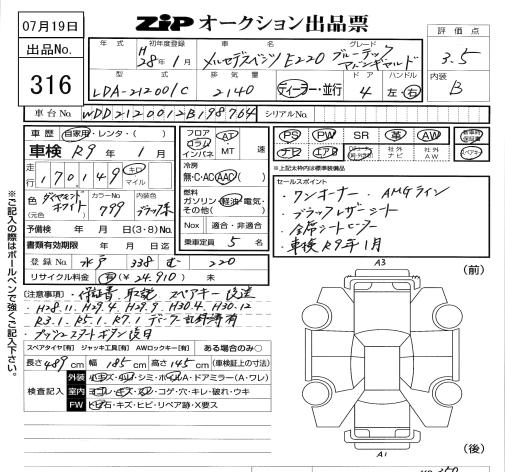 07月19日
出品No.
316
ZIP オークション出品票
評価点
3.5
内装
B
年式 初年度登録 車名 グレード
H 28年1月 メルセデスベンツ E220 ブルーテック アバンギャルド
型式 排気量 ドア ハンドル
LDA-212001C 2140 ディーラー・並行 4 左・右
車台No. WDD2120012B198764 シリアルNo.
車歴 自家用・レンタ・( )
車検 R9年1月
走行 170149 キロ マイル
色 (元色) ダイヤモンドホワイト カラーNo. 799 内装色 ブラック系
予備検 年 月 日(3・8)No.
書類有効期限 年 月 日迄
登録No. 水戸 338 む 220
リサイクル料金 有(¥ 24,910) 未
フロア コラム インパネ AT・MT 速
冷房 無・C・AC・AAC( )
燃料 ガソリン・軽油・電気・その他( )
Nox 適合・非適合
乗車定員 5 名
PS PW SR 革 AW
ナビ エアB 社外ナビ 社外AW
新車時保証書
※上記太枠内は標準装備品
セールスポイント
・ワンオーナー・AMGライン
・ブラックレザーシート
・全席シートヒーター
・車検R9年1月
(注意事項)・保証書 取説 スペアキー 後送
・H28.11. H29.4 H29.9 H30.4 H30.12
R3.1 R5.1 R7.1 ディーラー記録簿有
・プッシュスタートボタン後日
スペアタイヤ[有] ジャッキ工具[有] AWロックキー[有] ある場合のみ○
長さ 489cm 幅 185cm 高さ 145cm (車検証上の寸法)
検査記入
外装 小キズ・小凹・シミ・ホイルA・ドアミラー(A・ワレ)
室内 ヨゴレ・キズ・スレ・コゲ・穴・キレ・破れ・ウキ
FW トビ石・キズ・ヒビ・リペア跡・X要ス
A3
(前)
A1
(後)
※ご記入の際はボールペンで強くご記入下さい。